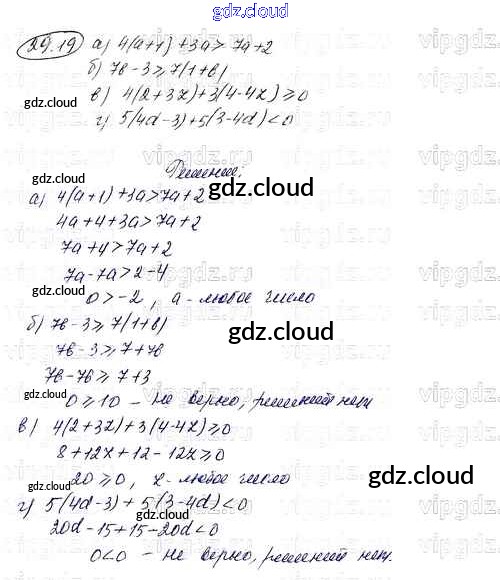 gdz.cloud
29.19 а) 4(a+1)+3a>7a+2
б) 7b-3≥7(1+b)
в) 4(2+3z)+3(4-4z)≥0
г) 5(4d-3)+5(3-4d)<0
gdz.cloud
Решение:
gdz.cloud
а) 4(a+1)+3a>7a+2
4a+4+3a>7a+2
7a+4>7a+2
7a-7a>2-4
0>-2, a-любое число
gdz.cloud
б) 7b-3≥7(1+b)
gdz.cloud
7b-3≥7+7b
7b-7b≥7+3
0≥10 - не верно, решений нет
gdz.cloud
в) 4(2+3z)+3(4-4z)≥0
8+12z+12-12z≥0
20≥0, z-любое число
gdz.cloud
gdz.cloud
г) 5(4d-3)+5(3-4d)<0
20d-15+15-20d<0
0<0 - не верно, решений нет.
gdz.cloud